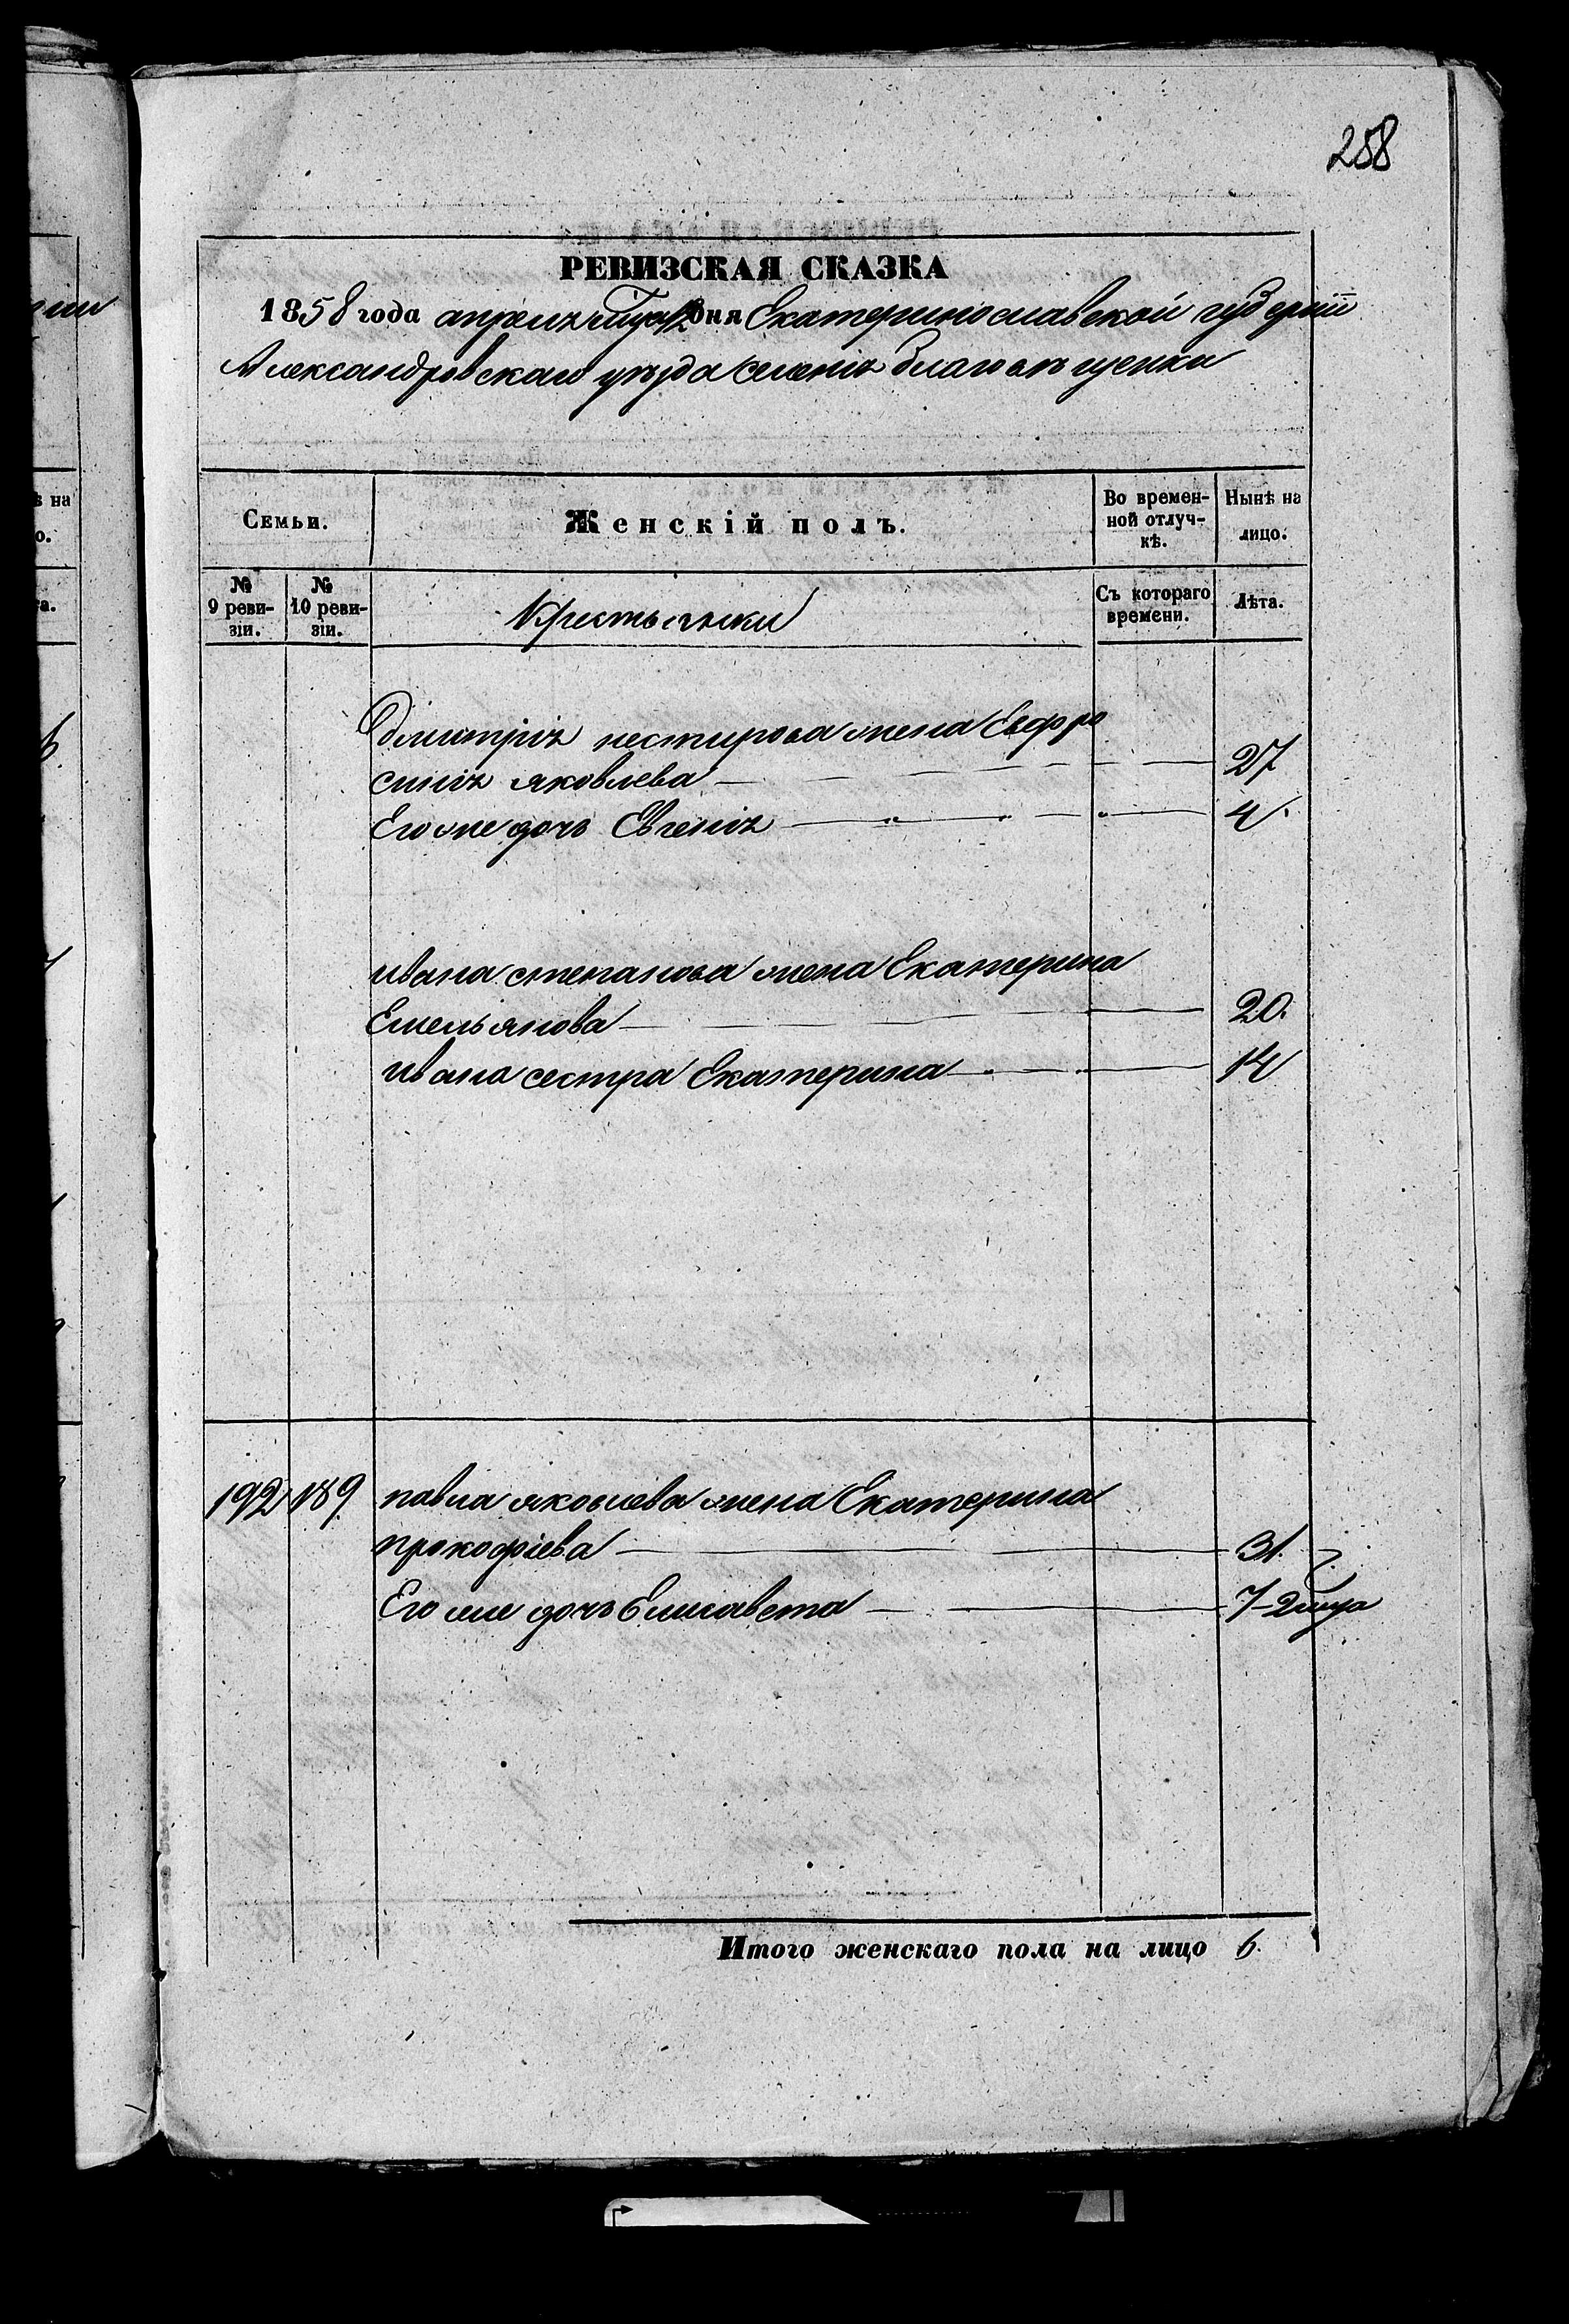 258
РЕВИЗСКАЯ СКАЗКА
1858 года апреля дня Екатеринославской губерніи
Александровскаго уезда селенія благовещенка
Семьи.
Женскій полъ.
Во времен-
ной отлуч-
кѣ.
Нынѣ на
лицо.
№
9 реви-
зіи.
№
10 реви-
зіи.
Крестьянки
Съ котораго
времени.
Лѣта.
Дмитрія нестирова жена Евфро
синія яковлева 27
Его же дочь Евгенія 4
ивана степанова жена Екатерина
Емельянова 20
ивана сестра Екатерина 14
192 189 павла яковлева жена Екатерина
прокофіева 31
Его же дочь Елисавета 7-2 м-ца
Итого женскаго пола на лицо 6.
ѣ на
о.
та.